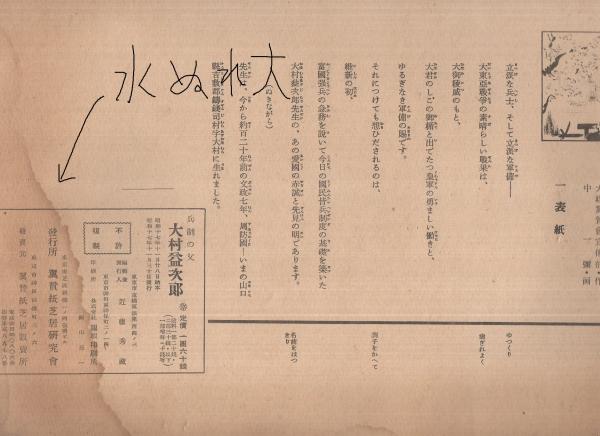 水ぬれ大
中 一彌・画
一 表紙
立派な兵士、そして立派な軍備――
大東亜戰爭の素晴らしい戰果は、
大御稜威のもと、
大君のしこの御楯と出でたつ皇軍の勇ましい働きと、
ゆるぎなき軍備の賜です。
それにつけても想ひだされるのは、
維新の初
富國强兵の急務を說いて今日の國民皆兵制度の基礎を築いた
大村益次郎先生の、あの愛國の赤誠と先見の明であります。
(ぬきながら)
先生は、今から約百二十年前の文政七年、周防國――いまの山口
縣吉敷郡鑄錢司村字大村に生れました。
ゆつくり
調子をかへて
名前をはつきり
兵制の父
大村益次郎
定價 一圓六十錢
昭和十七年十一月廿八日納本
昭和十七年十一月三十日發行
不許
複製
近藤秀藏
發行所 翼賛紙芝居研究會
發賣元 翼賛紙芝居販賣所